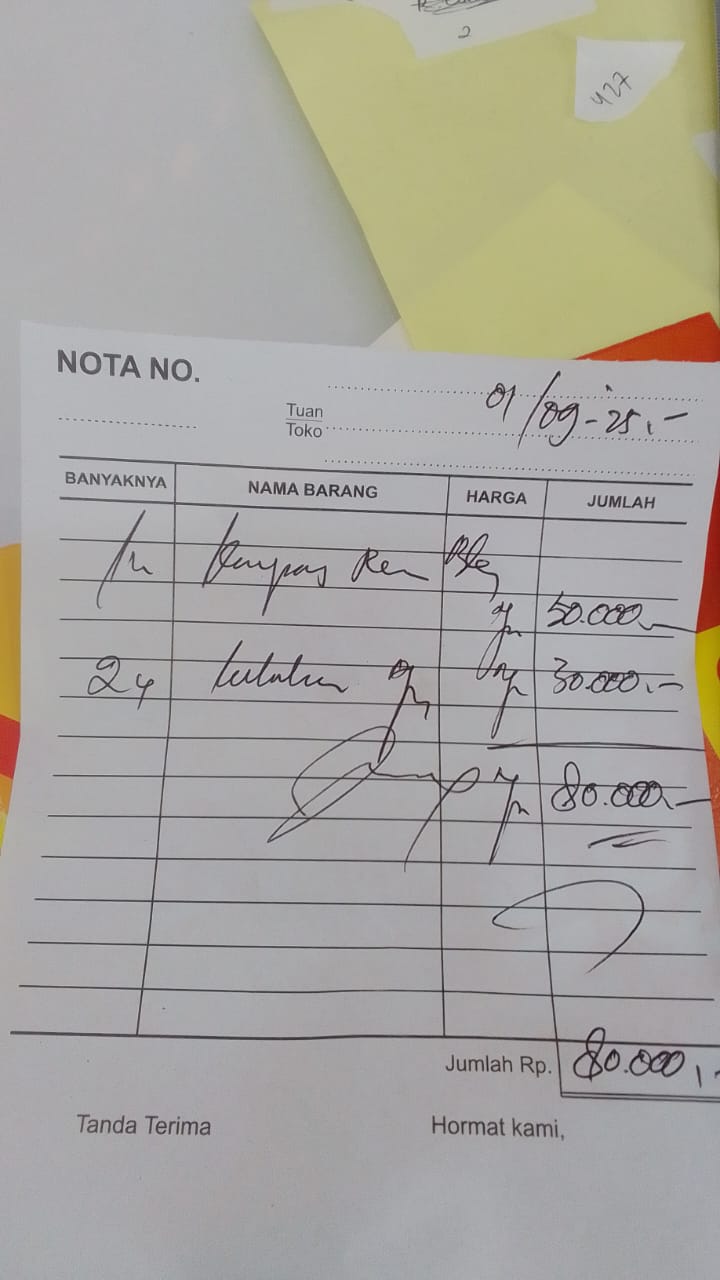 2
427
NOTA NO.
01/09-25,-
Tuan
Toko
BANYAKNYA NAMA BARANG HARGA JUMLAH
Kampas Rem Blkg
Rp 50.000,-
Rp 30.000,-
Rp 80.000,-
Jumlah Rp. 80.000,-
Tanda Terima Hormat kami,